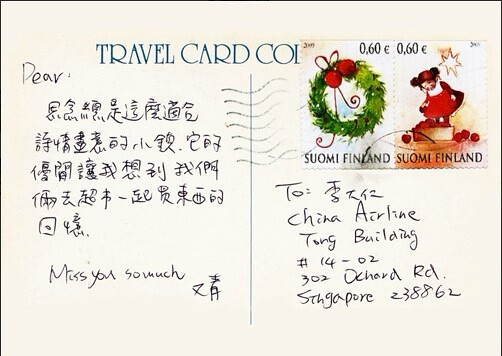 TRAVEL CARD COL
2005 0,60 € 0,60 € 2005
SUOMI FINLAND SUOMI FINLAND
Dear:
思念總是這麼適合
詩情畫意的小鎮.它的
優閒讓我想到我們
倆去超市一起買東西的
回憶.
Miss you so much
文青
To: 李大仁
China Airline
Tong Building
# 14-02
302 Ochard Rd.
Singapore 238862